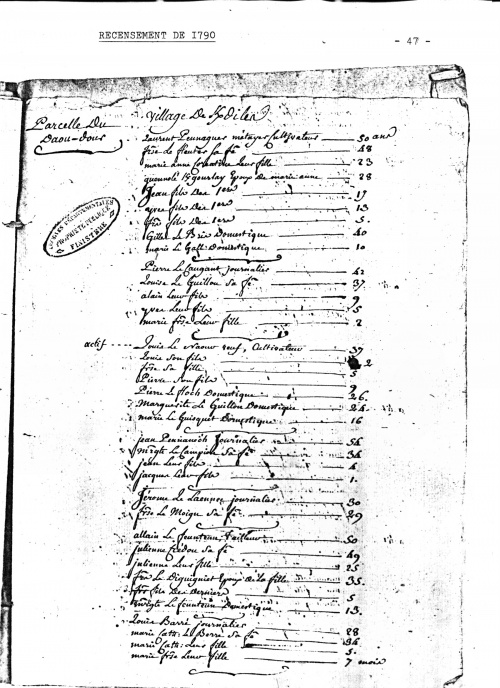 RECENSEMENT DE 1790
- 47 -
Village De
Parcelle Du
Daou-dour
Laurent Pennaguer métayer Cultivateur 50 ans
frse Le fleuter sa fe 48
marie anne Corentine Leur fille 23
guenolé Le gourlay Epoux de marie anne 28
Jean fils Des 1ers 17
yves fils Des 1ers 13
fils Des 1ers 5.
Gilles Le Bris Domestique 40
marie Le Gall Domestique 10
ARCHIVES DEPARTEMENTALES
PROPRIETE PUBLIQUE
FINISTERE
Pierre Le Caugant journalier 42
Louise Le Guillou Sa fe 37
alain Leur fils 9
yves Leur fils 5
marie frse Leur fille 2
actif
Louis Le Naour veuf, Cultivateur 39
Louis Son fils 2
frse Sa fille 5
Pierre Son fils 9
Pierre Le floch Domestique 26.
Marguerite Le Guillou Domestique 24.
marie Le Guisquet Domestique 16
jean Pennanéch Journalier 54
Mrgte Le Campion Sa fe 34
jean Leur fils 4
jacques Leur fils 1.
Jérôme Le Laennec journalier 30
frse Le Moign Sa fe 29
allain Le feunteun, Tailleur 50
julienne Sa fe 49
julienne Leur fille 25
Le Diquigniet Epoux de la fille 35.
fils Des Dernier 5
Mrgte Le feunteun Domestique 13.
Louis Barré journalier 28
marie Cath: Le Borré Sa fe 34
marie Cath: Leur fille 5.
marie frse Leur fille 7 mois